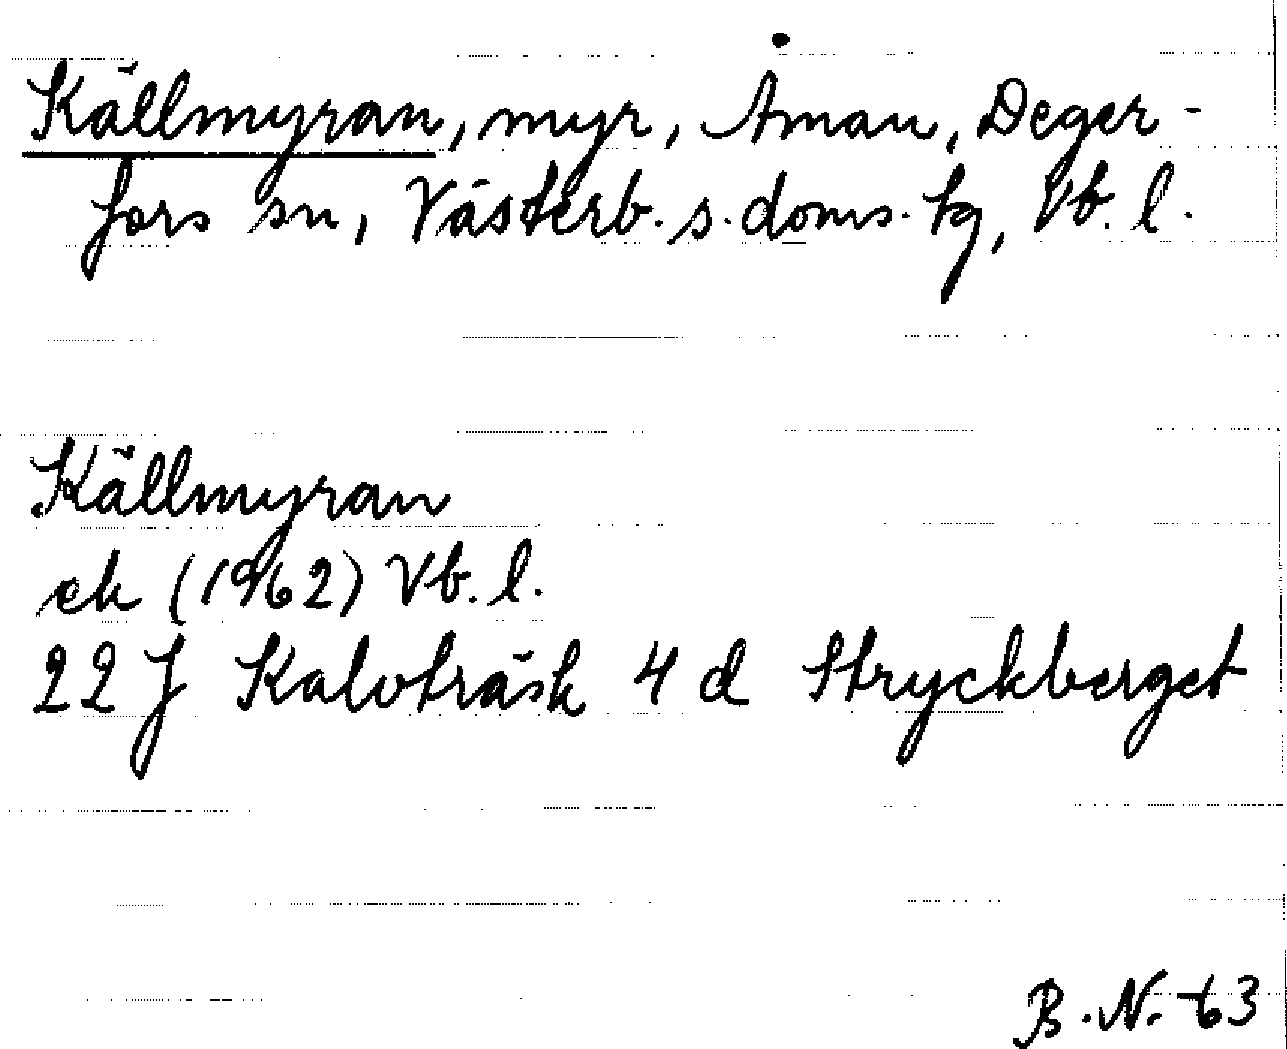 Källmyran, myr, Åman, Deger-
fors sn, Västerb. s. doms. tg, Vb. l.
Källmyran
ek (1962) Vb. l.
22 J Kalvträsk 4 d Stryckberget
B. N. -63